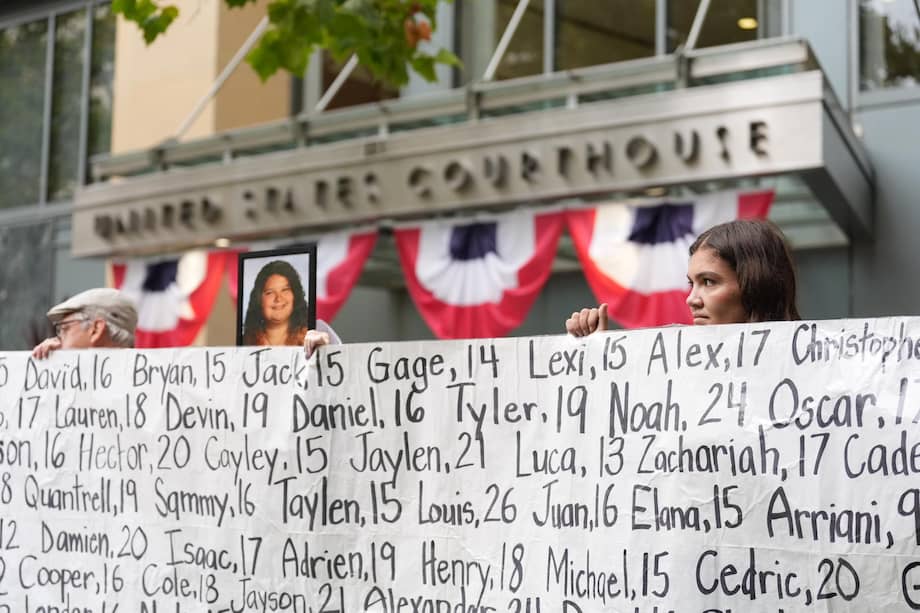 UNITED STATES COURTHOUSE
David, 16 Bryan, 15 Jack, 15 Gage, 14 Lexi, 15 Alex, 17 Christophe
17 Lauren, 18 Devin, 19 Daniel, 16 Tyler, 19 Noah, 24 Oscar, 1
son, 16 Hector, 20 Cayley, 15 Jaylen, 21 Luca, 13 Zachariah, 17 Cade
8 Quantrell, 19 Sammy, 16 Taylen, 15 Louis, 26 Juan, 16 Elana, 15 Arriani, 9
12 Damien, 20 Isaac, 17 Adrien, 19 Henry, 18 Michael, 15 Cedric, 20
Cooper, 16 Cole, 18 Jayson, 21 Alexander, 24